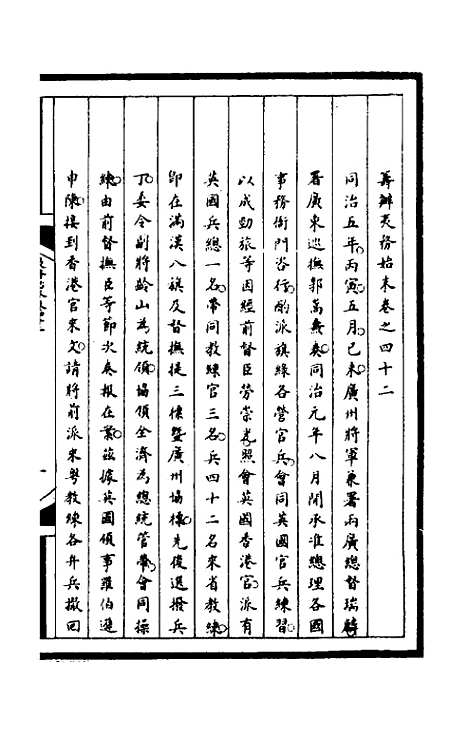 籌辦夷務始末卷之四十二
同治五年丙寅五月己未廣州將軍兼署兩廣總督瑞麟
署廣東巡撫郭嵩燾奏同治元年八月閒承准總理各國
事務衙門咨行酌派旗綠各營官兵會同英國官兵練習
以成勁旅等因經前督臣勞崇光照會英國香港官派有
英國兵總一名帶同教練官三名兵四十二名來省教練
卽在滿漢八旗及督撫提三標暨廣州協標先後選撥兵
丁委令副將齡山為統領協領全濟為總統管帶會同操
練由前督撫臣等節次奏報在案茲據英國領事羅伯遜
申陳接到香港官來文請將前派來粵教練各弁兵撤回